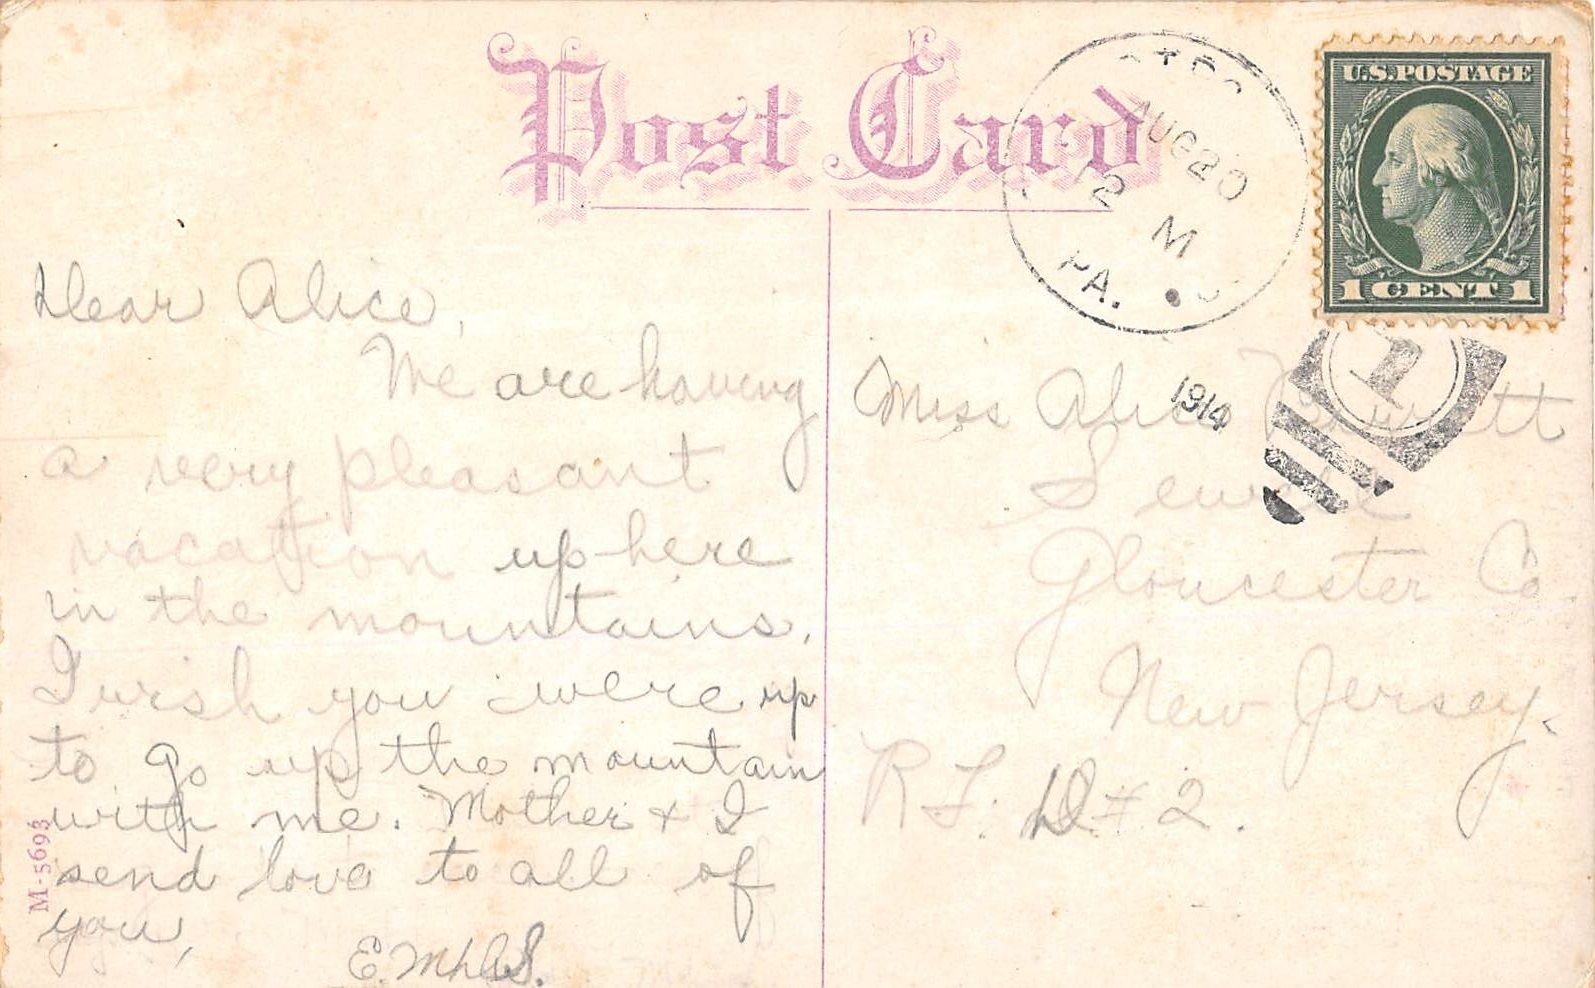 Post Card
AUG 20
2 M
PA.
1914
U.S. POSTAGE
1 CENT 1
1
Dear Alice,
We are having
a very pleasant
vacation up here
in the mountains.
I wish you were up
to go up the mountain
with me. Mother & I
send love to all of
you,
Miss Alice
Sewell
Gloucester Co
New Jersey.
R F. D # 2.
M-5693